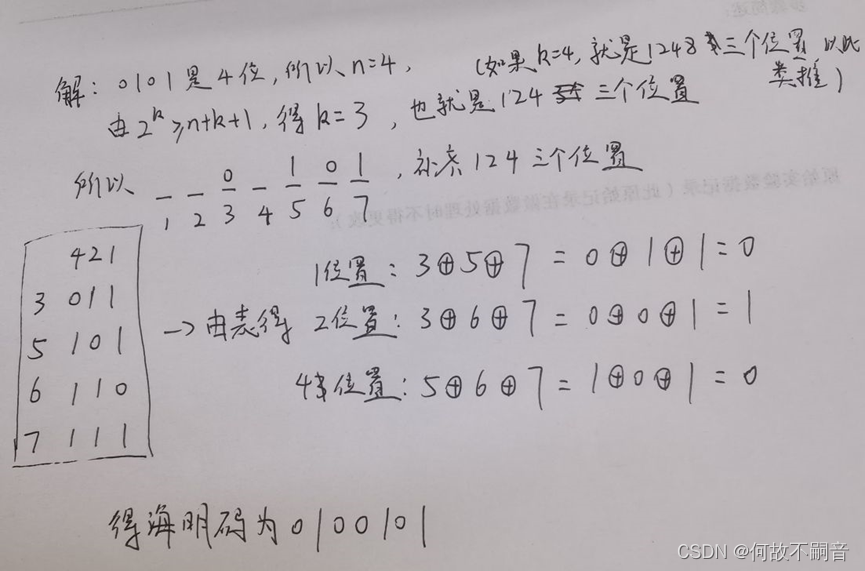 解：0101是4位，所以n=4，
（如果k=4，就是1248三个位置 以此类推）
由2^k≥n+k+1，得k=3，也就是124三个位置
所以 _ _ 0 _ 1 0 1，补充124三个位置
1 2 3 4 5 6 7
421
3 011
5 101
6 110
7 111
→由表得
1位置：3⊕5⊕7=0⊕1⊕1=0
2位置：3⊕6⊕7=0⊕0⊕1=1
4位置：5⊕6⊕7=1⊕0⊕1=0
得海明码为0100101
CSDN @何故不嗣音